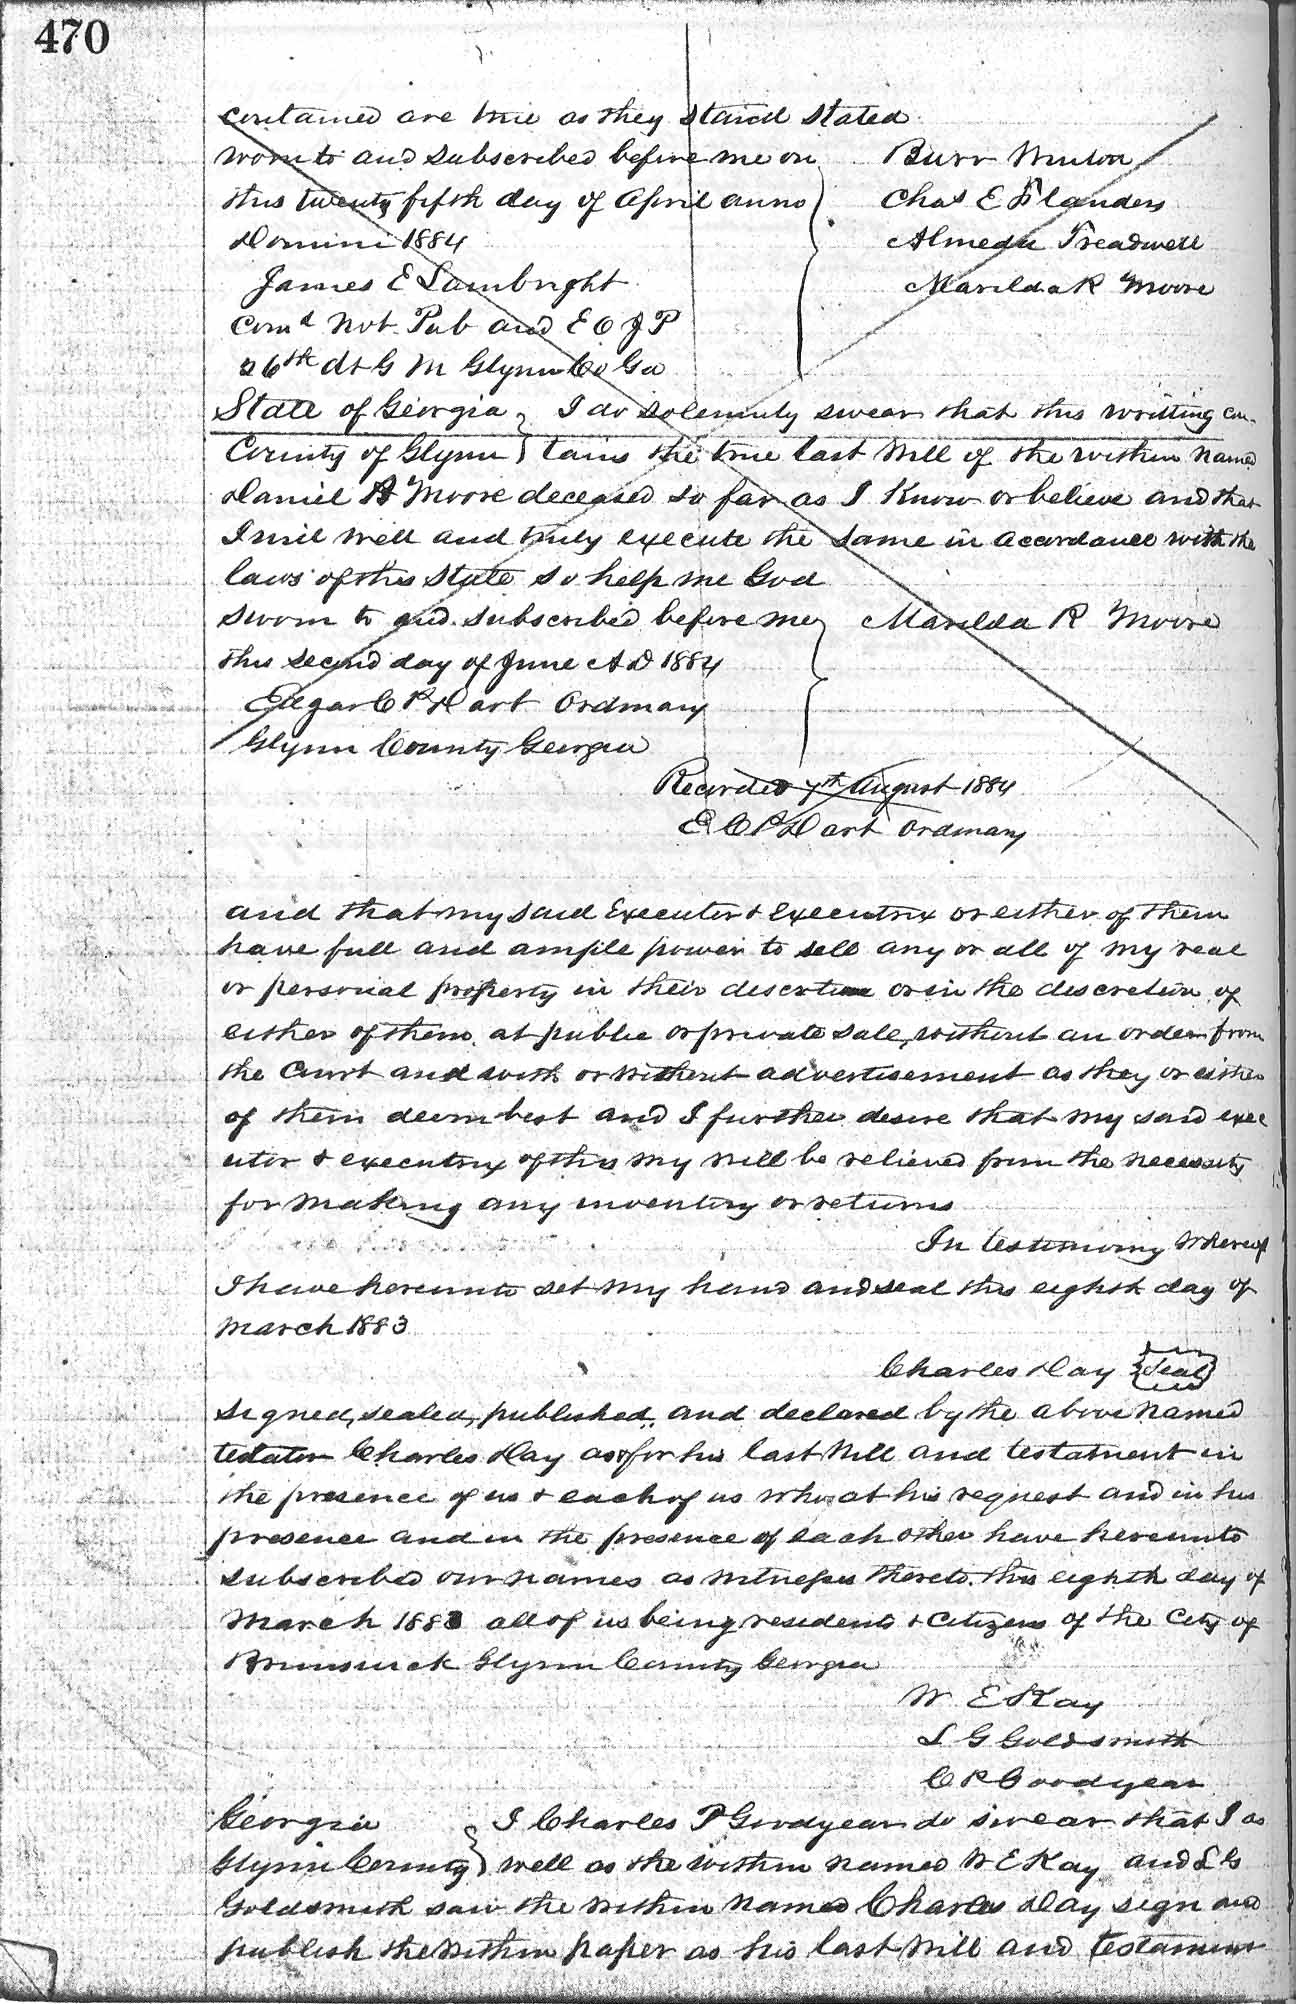 470
contained are true as they stand stated
worn to and subscribed before me on
this twenty fifth day of April anno
Domini 1884
James E Lambright
Com'd Not. Pub and E O J P
26th dt G M Glynn Co Ga
Burr Winton
Chas E Flanders
Almeda Treadwell
Marilda R Moore
State of Georgia } I do solemnly swear that this writting con-
County of Glynn } tains the true last Will of the within named
Daniel A Moore deceased so far as I Know or believe and that
I will well and truly execute the same in accordance with the
laws of this State so help me God
sworn to and subscribed before me
this second day of June A D 1884
Edgar C P Dart Ordinary
Glynn County Georgia
Marilda R Moore
Recorded 7th August 1884
E C P Dart Ordinary
and that my said Executor & executrix or either of them
have full and ample power to sell any or all of my real
or personal property in their discretion or in the discretion of
either of them at public or private sale, without an order from
the Court and with or without advertisement as they or either
of them deem best and I further desire that my said exec
utor & executrix of this my will be relieved from the necessity
for making any inventory or returns
In testimony Whereof
I have hereunto set my hand and seal this eighth day of
March 1883
Charles Day {Seal}
Signed, sealed, published, and declared by the above named
testator Charles Day as & for his last Will and testatment in
the presence of us & each of us who at his request and in his
presence and in the presence of each other have hereunto
subscribed our names as witnesses thereto. this eighth day of
March 1883 all of us being residents & citizens of the City of
Brunswick Glynn County Georgia
W E Kay
L G Goldsmith
C P Goodyear
Georgia } I Charles P Goodyear do swear that I as
Glynn County } well as the within named W E Kay and L G
Goldsmith saw the within named Charles Day sign and
publish the within paper as his last Will and testament